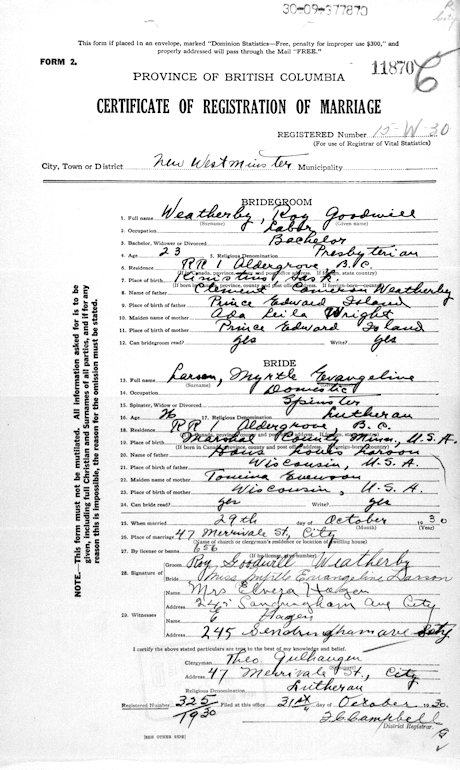 30-09-377870
This form if placed in an envelope, marked "Dominion Statistics—Free, penalty for improper use $300," and
properly addressed will pass through the Mail "FREE."
FORM 2.
11870
PROVINCE OF BRITISH COLUMBIA
CERTIFICATE OF REGISTRATION OF MARRIAGE
REGISTERED Number 15-W-30
(For use of Registrar of Vital Statistics)
City, Town or District New Westminster Municipality
BRIDEGROOM
1. Full name Weatherby, Roy Goodwill
(Surname) (Given name)
2. Occupation Labor
3. Bachelor, Widower or Divorced Bachelor
4. Age 23 5. Religious Denomination Presbyterian
6. Residence RR 1 Aldergrove B.C.
7. Place of birth Kinistino Sask
8. Name of father Clement Cameron Weatherby
9. Place of birth of father Prince Edward Island
10. Maiden name of mother Ada Leila Wright
11. Place of birth of mother Prince Edward Island
12. Can bridegroom read? yes Write? yes
BRIDE
13. Full name Larson, Myrtle Evangeline
(Surname)
14. Occupation Domestic
15. Spinster, Widow or Divorced Spinster
16. Age 26 17. Religious Denomination Lutheran
18. Residence RR 1 Aldergrove, B.C.
19. Place of birth Marshal County Minn., U.S.A.
20. Name of father Hans Louis Larson
21. Place of birth of father Wisconsin, U.S.A.
22. Maiden name of mother Evenson
23. Place of birth of mother Wisconsin, U.S.A.
24. Can bride read? yes Write? yes
25. When married 29th day of October 1930
(Month) (Year)
26. Place of marriage 47 Merrivale St, City
(Name of church or clergyman's residence or location of dwelling house)
27. By license or banns 656
(If by license, give number)
28. Signature of
Groom Roy Goodwill Weatherby
Bride Miss Myrtle Evangeline Larson
29. Witnesses
Name Mrs Elvera Hagen
Address 245 Sandringham Ave City
Name E Hagen
Address 245 Sendringham ave City
I certify the above stated particulars are true to the best of my knowledge and belief.
Clergyman Theo Gulhaugen
Address 47 Merrivale St., City
Religious Denomination Lutheran
Registered Number 325/1930 Filed at this office 31st day of October 1930.
District Registrar.
[SEE OTHER SIDE]
NOTE. This form must not be mutilated. All information asked for is to be
given, including full Christian and Surnames of all parties, and if for any
reason this is impossible, the reason for the omission must be stated.